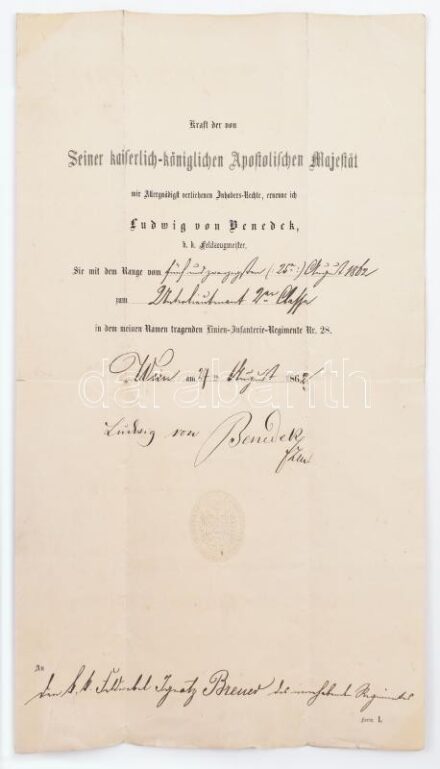 Kraft der von
Seiner kaiserlich-königlichen Apostolischen Majestät
mir Allergnädigst verliehenen Inhabers-Rechte, ernenne ich
Ludwig von Benedek,
k. k. Feldzeugmeister,
Sie mit dem Range vom fünfundzwanzigsten (: 25ten :) August 1862
zum Unterlieutenant 2ter Classe
in dem meinen Namen tragenden Linien-Infanterie-Regimente Nr. 28.
Wien am 27 August 1862
darabanth
Ludwig von Benedek
FZM
An
den k. k. Feldwebel Ignatz Breuer des Regimentes
Form. I.